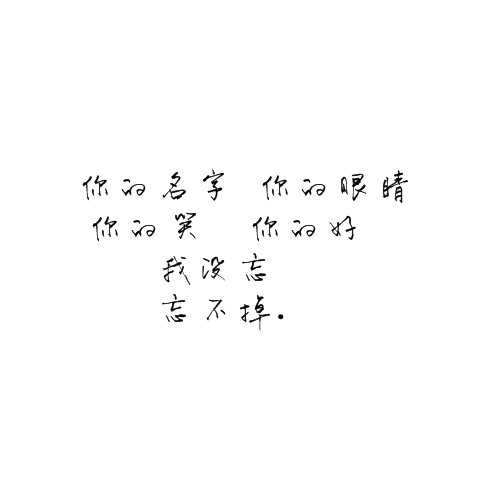 你的名字 你的眼睛
你的笑 你的好
我没忘
忘不掉.